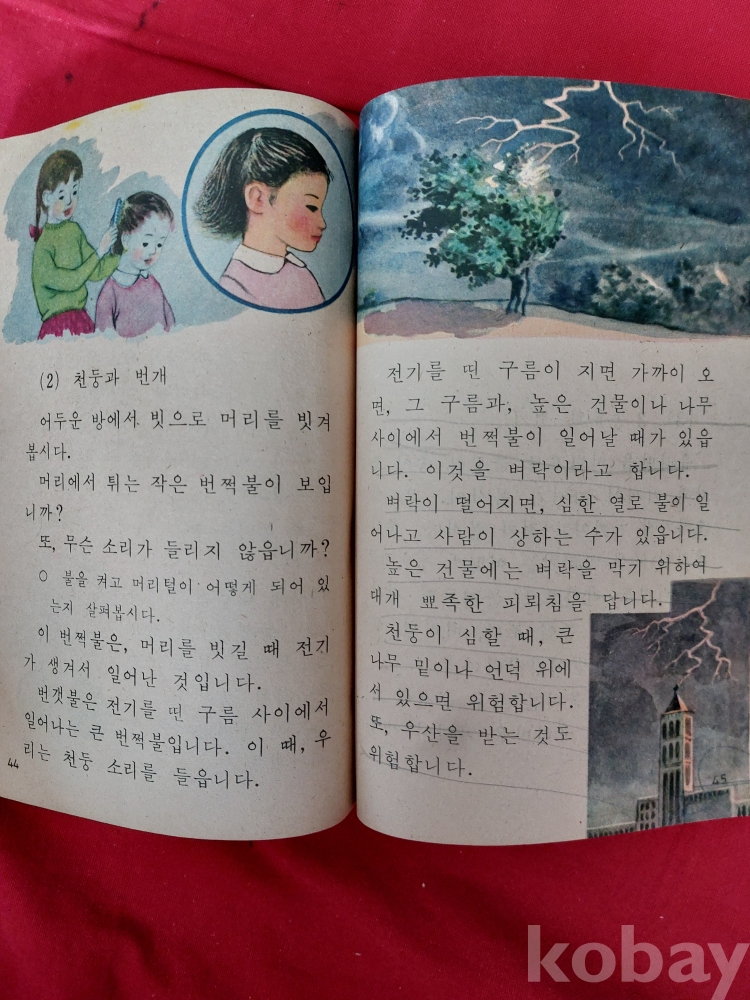 (2) 천둥과 번개
어두운 방에서 빗으로 머리를 빗겨
봅시다.
머리에서 튀는 작은 번쩍불이 보입
니까?
또, 무슨 소리가 들리지 않읍니까?
○ 불을 켜고 머리털이 어떻게 되어 있
는지 살펴봅시다.
이 번쩍불은, 머리를 빗길 때 전기
가 생겨서 일어난 것입니다.
번갯불은 전기를 띤 구름 사이에서
일어나는 큰 번쩍불입니다. 이 때, 우
리는 천둥 소리를 듣읍니다.
44
전기를 띤 구름이 지면 가까이 오
면, 그 구름과, 높은 건물이나 나무
사이에서 번쩍불이 일어날 때가 있읍
니다. 이것을 벼락이라고 합니다.
벼락이 떨어지면, 심한 열로 불이 일
어나고 사람이 상하는 수가 있읍니다.
높은 건물에는 벼락을 막기 위하여
대개 뾰족한 피뢰침을 답니다.
천둥이 심할 때, 큰
나무 밑이나 언덕 위에
서 있으면 위험합니다.
또, 우산을 받는 것도
위험합니다.
45
kobay